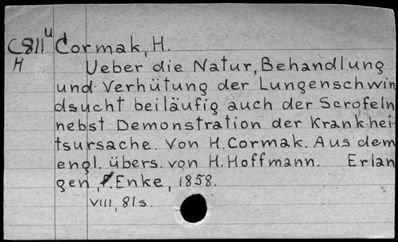 C811u Cormak, H.
H
Ueber die Natur, Behandlung
und Verhütung der Lungenschwin
dsucht beiläufig auch der Scrofeln
nebst Demonstration der Krankhei
tsursache. Von H. Cormak. Aus dem
engl. übers. von H. Hoffmann. Erlan
gen, Enke, 1858.
VIII, 81s.